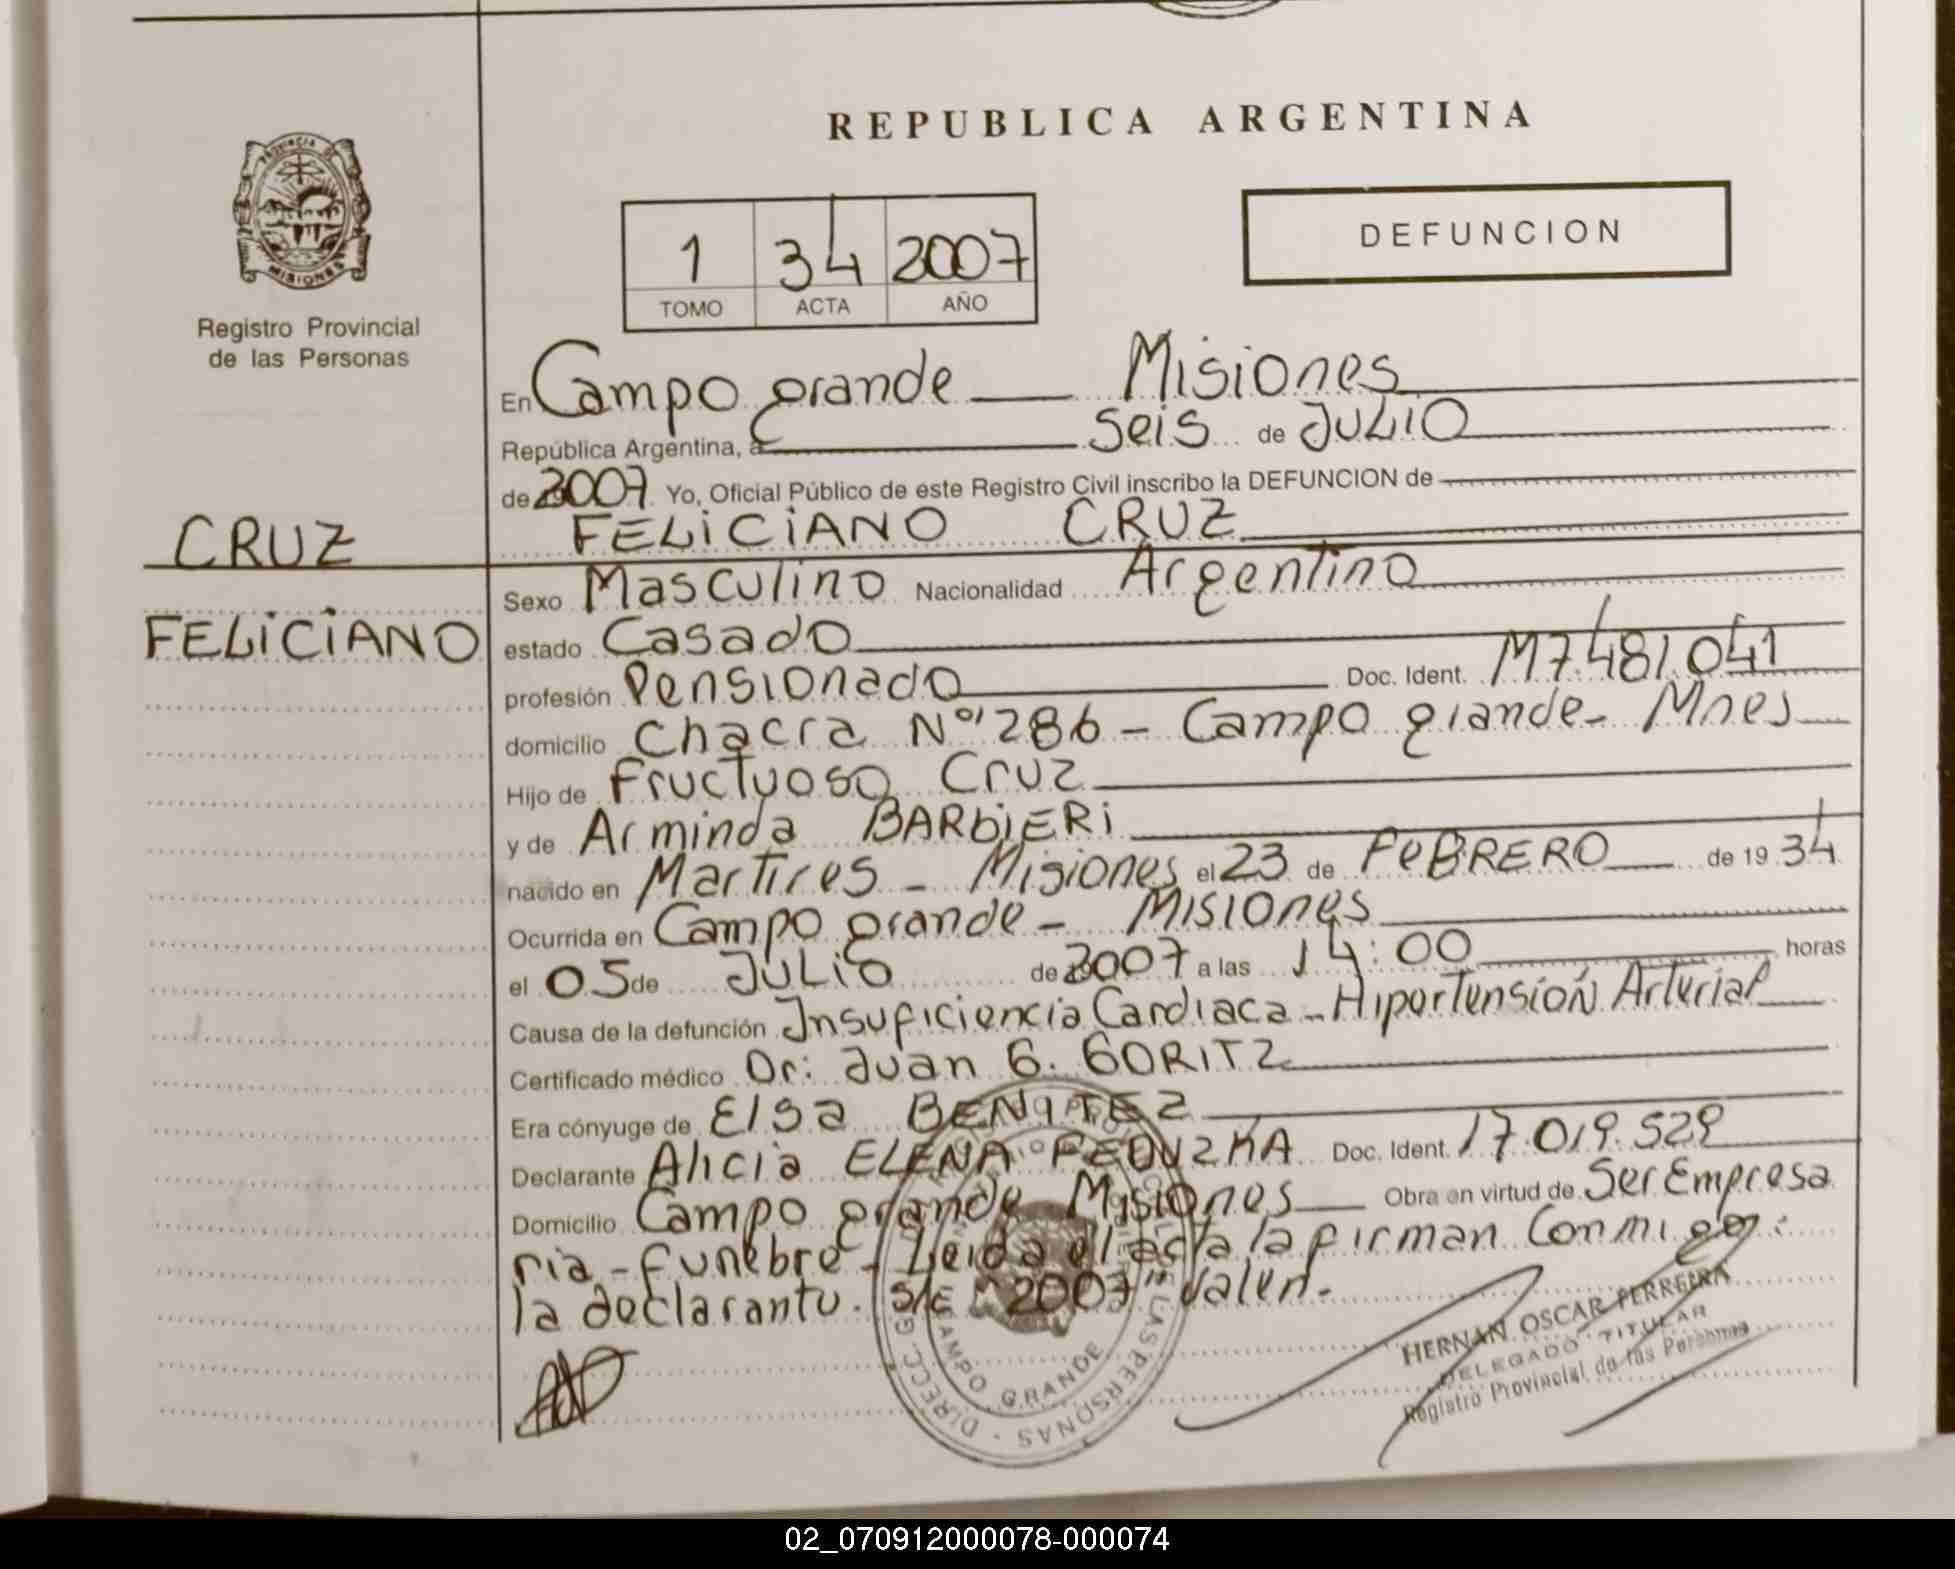 REPUBLICA ARGENTINA
PROVINCIA DE
MISIONES
Registro Provincial
de las Personas
DEFUNCION
1 34 2007
TOMO ACTA AÑO
En Campo grande Misiones
República Argentina, a seis de JULIO
de 2007 Yo, Oficial Público de este Registro Civil inscribo la DEFUNCION de
CRUZ
FELICIANO CRUZ
FELICIANO
Sexo Masculino Nacionalidad Argentino
estado Casado
profesión Pensionado Doc. Ident. M7.481.041
domicilio Chacra Nº 286 - Campo grande - Mnes
Hijo de Fructuoso Cruz
y de Arminda BARBIERI
nacido en Martires - Misiones el 23 de FeBRERO de 1934
Ocurrida en Campo grande - Misiones
el 05 de JULIO de 2007 a las 14:00 horas
Causa de la defunción Insuficiencia Cardiaca - Hipertensión Arterial
Certificado médico Dr: Juan G. GORITZ
Era cónyuge de Elsa BENITEZ
Declarante Alicia ELENA FEDUZKA Doc. Ident. 17.019.529
Domicilio Campo grande Misiones Obra en virtud de Ser Empresa
ria - funebre - Leida el acta la firman Conmigo:
la declarante. S/E "2007" Valen.
HERNAN OSCAR FERREIRA
DELEGADO TITULAR
Registro Provincial de las Personas
CAMPO GRANDE
DIRECC. G
DE LAS PERSONAS
02_070912000078-000074